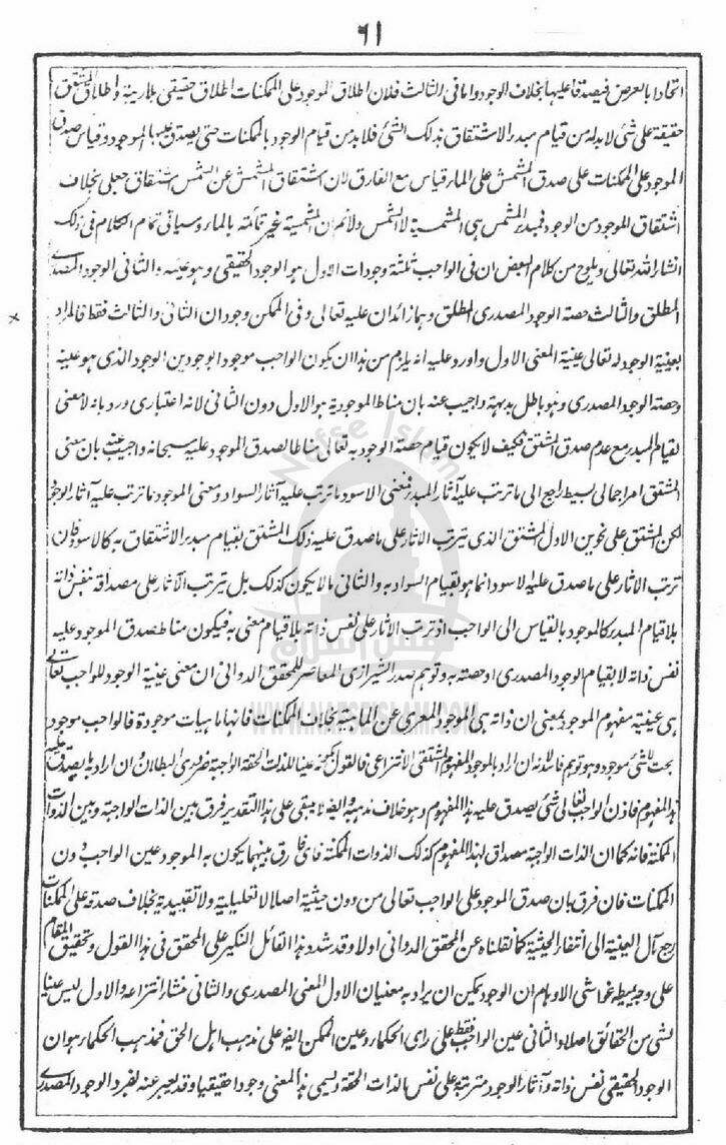 ٦١
اتحادا بالعرض فيصدق عليها بخلاف الوجود واما في الثالث فلان اطلاق الموجود على الممكنات اطلاق حقيقي بلا ريبة واطلاق المشتق
حقيقة على شئ لا بد له من قيام مبدء الاشتقاق بذلك الشئ فلا بد من قيام الوجود بالممكنات حتى يصدق عليها الموجود وقياس صدق
الموجود على الممكنات على صدق المشمش على الماء قياس مع الفارق لان اشتقاق المشمش عن الشمس اشتقاق جعلي بخلاف
اشتقاق الموجود من الوجود فمبدء المشمس هي المشمسية لا الشمس ولا نم ان المشمسية غير قائمة بالماء وسياتي تمام الكلام في ذلك
انشاء الله تعالى ويلوح من كلام البعض ان في الواجب ثلثة وجودات الاول هو الوجود الحقيقي وهو عينه والثاني الوجود المصدري
المطلق والثالث حصة الوجود المصدري المطلق وهما زائدان عليه تعالى وفي الممكن وجودان الثاني والثالث فقط فالمراد
بعينية الوجود له تعالى عينية المعنى الاول واورد عليه انه يلزم من هذا ان يكون الواجب موجودا بوجودين الوجود الذي هو عينه
وحصة الوجود المصدري وهو باطل بديهة واجيب عنه بان مناط الموجودية هو الاول دون الثاني لانه اعتباري ورد بانه لا معنى
لقيام المبدء مع عدم صدق المشتق فكيف لا يكون قيام حصة الوجود به تعالى مناطا لصدق الموجود عليه سبحانه واجيب عنه بان معنى
المشتق امر اجمالي بسيط راجع الى ما ترتب عليه آثار المبدء فمعنى الاسود ما ترتب عليه آثار السواد ومعنى الموجود ما ترتب عليه آثار الوجود
لكن المشتق على نحوين الاول المشتق الذي يترتب الاثار على ما صدق عليه ذلك المشتق بقيام مبدء الاشتقاق به كالاسود فان
ترتب الاثار على ما صدق عليه الاسود انما هو بقيام السواد به والثاني ما لا يكون كذلك بل يترتب الآثار على مصداقه بنفس ذاته
بلا قيام المبدء كالموجود بالقياس الى الواجب اذ ترتب الاثار على نفس ذاته بلا قيام معنى به فيكون مناط صدق الموجود عليه
نفس ذاته لا بقيام الوجود المصدري او حصته به وتوهم صدر الشيرازي المعاصر للمحقق الدواني ان معنى عينية الوجود للواجب تعالى
هي عينية مفهوم الموجود بمعنى ان ذاته هي الموجود المعرى عن الماهية بخلاف الممكنات فانها ماهيات موجودة فالواجب موجود
بحت لا شئ موجود وهو توهم فاسد لانه ان اراد بالموجود المفهوم المشتقي الانتزاعي فالقول بكونه عينا للذات الحقة الواجبة ضروري البطلان وان اراد ما يصدق عليه
هذا المفهوم فاذن الواجب تعالى شئ يصدق عليه هذا المفهوم وهو خلاف مذهبه وايضا يبقى على هذا التقدير فرق بين الذات الواجبة وبين الذوات
الممكنة فانه كما ان الذات الواجبة مصداق لهذا المفهوم كذلك الذوات الممكنة فاي فارق بينهما يكون به الموجود عين الواجب دون
الممكنات فان فرق بان صدق الموجود على الواجب تعالى من دون حيثية اصلا لا تعليلية ولا تقييدية بخلاف صدقه على الممكنات
رجع مآل العينية الى انتفاء الحيثية كما نقلناه عن المحقق الدواني اولا وقد شدد هذا القائل النكير على المحقق في هذا القول وتحقيق المقام
على وجه يميط غواشي الاوهام ان الوجود يمكن ان يراد به معنيان الاول المعنى المصدري والثاني منشاء انتزاعه والاول ليس عينا
لشئ من الحقائق اصلا والثاني عين الواجب فقط على راى الحكماء وعين الممكن ايضا على مذهب اهل الحق فمذهب الحكماء هو ان
الوجود الحقيقي نفس ذاته وآثار الوجود مترتبة على نفس الذات الحقة ويسمى هذا المعنى وجودا حقيقيا وقد يعبر عنه بفرد الوجود المصدري
Nafse Islam
نفس اسلام
WWW.NAFSEISLAM.COM